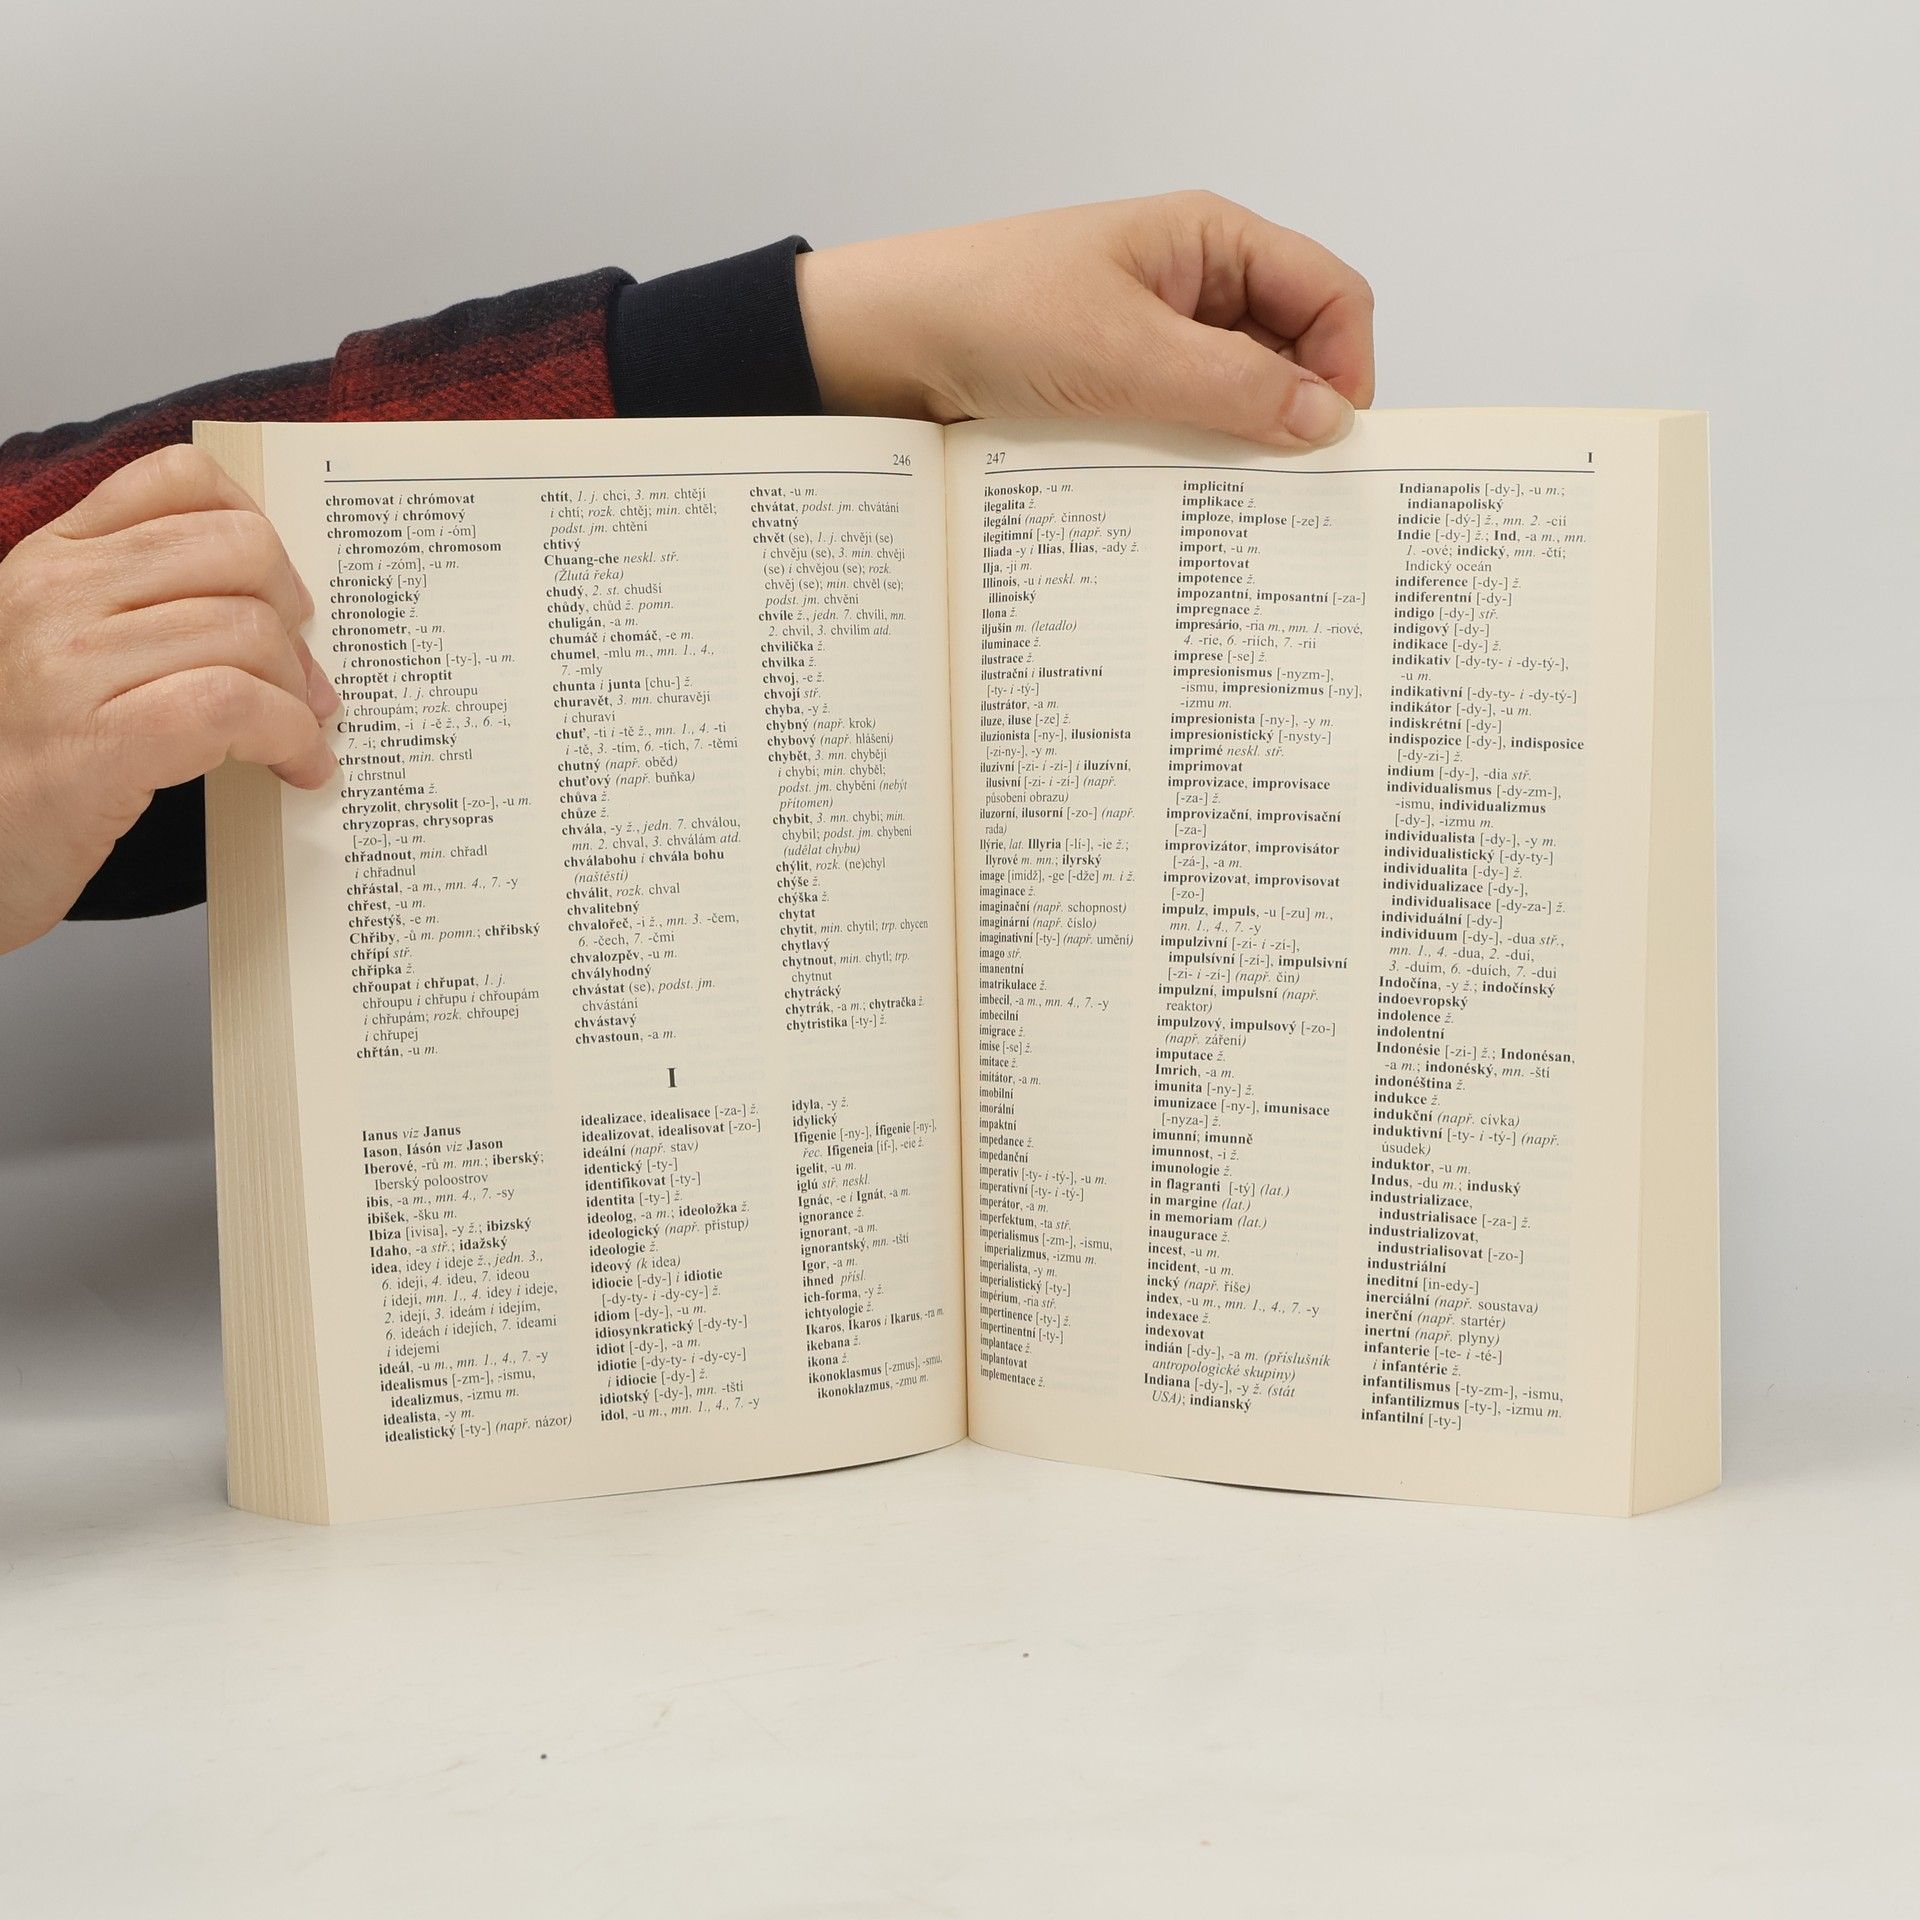 I 246
chromovat i chrómovat
chromový i chrómový
chromozom [-om i -óm]
i chromozóm, chromosom
[-zom i -zóm], -u m.
chronický [-ny]
chronologický
chronologie ž.
chronometr, -u m.
chronostich [-ty-]
i chronostichon [-ty-], -u m.
chroptět i chroptit
chroupat, 1. j. chroupu
i chroupám; rozk. chroupej
Chrudim, -i i -ě ž., 3., 6. -i,
7. -í; chrudimský
chrstnout, min. chrstl
i chrstnul
chryzantéma ž.
chryzolit, chrysolit [-zo-], -u m.
chryzopras, chrysopras
[-zo-], -u m.
chřadnout, min. chřadl
i chřadnul
chřástal, -a m., mn. 4., 7. -y
chřest, -u m.
chřestýš, -e m.
Chřiby, -ů m. pomn.; chřibský
chřípí stř.
chřipka ž.
chřoupat i chřupat, 1. j.
chřoupu i chřupu i chřoupám
i chřupám; rozk. chřoupej
i chřupej
chřtán, -u m.
chtít, 1. j. chci, 3. mn. chtějí
i chtí; rozk. chtěj; min. chtěl;
podst. jm. chtění
chtivý
Chuang-che neskl. stř.
(Žlutá řeka)
chudý, 2. st. chudší
chůdy, chůd ž. pomn.
chuligán, -a m.
chumáč i chomáč, -e m.
chumel, -mlu m., mn. 1., 4.,
7. -mly
chunta i junta [chu-] ž.
churavět, 3. mn. churavějí
i churaví
chuť, -ti i -tě ž., mn. 1., 4. -ti
i -tě, 3. -tím, 6. -tích, 7. -těmi
chutný (např. oběd)
chuťový (např. buňka)
chůva ž.
chůze ž.
chvála, -y ž., jedn. 7. chválou,
mn. 2. chval, 3. chválám atd.
chválabohu i chvála bohu
(naštěstí)
chválit, rozk. chval
chvalitebný
chvalořeč, -i ž., mn. 3. -čem,
6. -čech, 7. -čmi
chvalozpěv, -u m.
chvályhodný
chvástat (se), podst. jm.
chvástání
chvástavý
chvastoun, -a m.
chvat, -u m.
chvátat, podst. jm. chvátání
chvatný
chvět (se), 1. j. chvěji (se)
i chvěju (se), 3. min. chvějí
(se) i chvějou (se); rozk.
chvěj (se); min. chvěl (se);
podst. jm. chvění
chvíle ž., jedn. 7. chvílí, mn.
2. chvil, 3. chvílím atd.
chvilička ž.
chvilka ž.
chvoj, -e ž.
chvojí stř.
chyba, -y ž.
chybný (např. krok)
chybový (např. hlášení)
chybět, 3. mn. chybějí
i chybí; min. chyběl;
podst. jm. chybění (nebýt
přítomen)
chybit, 3. mn. chybí; min.
chybil; podst. jm. chybení
(udělat chybu)
chýlit, rozk. (ne)chyl
chýše ž.
chýška ž.
chytat
chytit, min. chytil; trp. chycen
chytlavý
chytnout, min. chytl; trp.
chytnut
chytrácký
chytrák, -a m.; chytračka ž.
chytristika [-ty-] ž.
I
Ianus viz Janus
Iason, Iásón viz Jason
Iberové, -rů m. mn.; iberský;
Iberský poloostrov
ibis, -a m., mn. 4., 7. -sy
ibišek, -šku m.
Ibiza [ivisa], -y ž.; ibizský
Idaho, -a stř.; idažský
idea, idey i ideje ž., jedn. 3.,
6. ideji, 4. ideu, 7. ideou
i idejí, mn. 1., 4. idey i ideje,
2. idejí, 3. ideám i idejím,
6. ideách i idejích, 7. ideami
i idejemi
ideál, -u m., mn. 1., 4., 7. -y
idealismus [-zm-], -ismu,
idealizmus, -izmu m.
idealista, -y m.
idealistický [-ty-] (např. názor)
idealizace, idealisace [-za-] ž.
idealizovat, idealisovat [-zo-]
ideální (např. stav)
identický [-ty-]
identifikovat [-ty-]
identita [-ty-] ž.
ideolog, -a m.; ideoložka ž.
ideologický (např. přístup)
ideologie ž.
ideový (k idea)
idiocie [-dy-] i idiotie
[-dy-ty- i -dy-cy-] ž.
idiom [-dy-], -u m.
idiosynkratický [-dy-ty-]
idiot [-dy-], -a m.
idiotie [-dy-ty- i -dy-cy-]
i idiocie [-dy-] ž.
idiotský [-dy-], mn. -tští
idol, -u m., mn. 1., 4., 7. -y
idyla, -y ž.
idylický
Ifigenie [-ny-], Ífigenie [-ny-],
řec. Ifigeneia [if-], -eie ž.
igelit, -u m.
iglú stř. neskl.
Ignác, -e i Ignát, -a m.
ignorance ž.
ignorant, -a m.
ignorantský, mn. -tští
Igor, -a m.
ihned přísl.
ich-forma, -y ž.
ichtyologie ž.
Ikaros, Íkaros i Ikarus, -ra m.
ikebana ž.
ikona ž.
ikonoklasmus [-zmus], -smu,
ikonoklazmus, -zmu m.
247 I
ikonoskop, -u m.
ilegalita ž.
ilegální (např. činnost)
ilegitimní [-ty-] (např. syn)
Iliada -y i Ilias, Ílias, -ady ž.
Ilja, -ji m.
Illinois, -u i neskl. m.;
illinoiský
Ilona ž.
iljušin m. (letadlo)
iluminace ž.
ilustrace ž.
ilustrační i ilustrativní
[-ty- i -tý-]
ilustrátor, -a m.
iluze, iluse [-ze] ž.
iluzionista [-ny-], ilusionista
[-zi-ny-], -y m.
iluzivní [-zi- i -zí-] i iluzívní,
ilusivní [-zi- i -zí-] (např.
působení obrazu)
iluzorní, ilusorní [-zo-] (např.
rada)
Ilýrie, lat. Illyria [-lí-], -ie ž.;
Ilyrové m. mn.; ilyrský
image [imidž], -ge [-dže] m. i ž.
imaginace ž.
imaginační (např. schopnost)
imaginární (např. číslo)
imaginativní [-ty-] (např. umění)
imago stř.
imanentní
imatrikulace ž.
imbecil, -a m., mn. 4., 7. -y
imbecilní
imigrace ž.
imise [-se] ž.
imitace ž.
imitátor, -a m.
imobilní
imorální
impaktní
impedance ž.
impedanční
imperativ [-ty- i -tý-], -u m.
imperativní [-ty- i -tý-]
imperátor, -a m.
imperfektum, -ta stř.
imperialismus [-zm-], -ismu,
imperializmus, -izmu m.
imperialista, -y m.
imperialistický [-ty-]
impérium, -ria stř.
impertinence [-ty-] ž.
impertinentní [-ty-]
implantace ž.
implantovat
implementace ž.
implicitní
implikace ž.
imploze, implose [-ze] ž.
imponovat
import, -u m.
importovat
impotence ž.
impozantní, imposantní [-za-]
impregnace ž.
impresário, -ria m., mn. 1. -riové,
4. -rie, 6. -riích, 7. -rii
imprese [-se] ž.
impresionismus [-nyzm-],
-ismu, impresionizmus [-ny],
-izmu m.
impresionista [-ny-], -y m.
impresionistický [-nysty-]
imprimé neskl. stř.
imprimovat
improvizace, improvisace
[-za-] ž.
improvizační, improvisační
[-za-]
improvizátor, improvisátor
[-zá-], -a m.
improvizovat, improvisovat
[-zo-]
impulz, impuls, -u [-zu] m.,
mn. 1., 4., 7. -y
impulzivní [-zi- i -zí-],
impulsívní [-zí-], impulsivní
[-zi- i -zí-] (např. čin)
impulzní, impulsní (např.
reaktor)
impulzový, impulsový [-zo-]
(např. záření)
imputace ž.
Imrich, -a m.
imunita [-ny-] ž.
imunizace [-ny-], imunisace
[-nyza-] ž.
imunní; imunně
imunnost, -i ž.
imunologie ž.
in flagranti [-tý] (lat.)
in margine (lat.)
in memoriam (lat.)
inaugurace ž.
incest, -u m.
incident, -u m.
incký (např. říše)
index, -u m., mn. 1., 4., 7. -y
indexace ž.
indexovat
indián [-dy-], -a m. (příslušník
antropologické skupiny)
Indiana [-dy-], -y ž. (stát
USA); indianský
Indianapolis [-dy-], -u m.;
indianapoliský
indicie [-dý-] ž., mn. 2. -cií
Indie [-dy-] ž.; Ind, -a m., mn.
1. -ové; indický, mn. -čtí;
Indický oceán
indiference [-dy-] ž.
indiferentní [-dy-]
indigo [-dy-] stř.
indigový [-dy-]
indikace [-dy-] ž.
indikativ [-dy-ty- i -dy-tý-],
-u m.
indikativní [-dy-ty- i -dy-tý-]
indikátor [-dy-], -u m.
indiskrétní [-dy-]
indispozice [-dy-], indisposice
[-dy-zi-] ž.
indium [-dy-], -dia stř.
individualismus [-dy-zm-],
-ismu, individualizmus
[-dy-], -izmu m.
individualista [-dy-], -y m.
individualistický [-dy-ty-]
individualita [-dy-] ž.
individualizace [-dy-],
individualisace [-dy-za-] ž.
individuální [-dy-]
individuum [-dy-], -dua stř.,
mn. 1., 4. -dua, 2. -duí,
3. -duím, 6. -duích, 7. -dui
Indočína, -y ž.; indočínský
indoevropský
indolence ž.
indolentní
Indonésie [-zi-] ž.; Indonésan,
-a m.; indonéský, mn. -ští
indonéština ž.
indukce ž.
indukční (např. cívka)
induktivní [-ty- i -tý-] (např.
úsudek)
induktor, -u m.
Indus, -du m.; induský
industrializace,
industrialisace [-za-] ž.
industrializovat,
industrialisovat [-zo-]
industriální
ineditní [in-edy-]
inerciální (např. soustava)
inerční (např. startér)
inertní (např. plyny)
infanterie [-te- i -té-]
i infantérie ž.
infantilismus [-ty-zm-], -ismu,
infantilizmus [-ty-], -izmu m.
infantilní [-ty-]